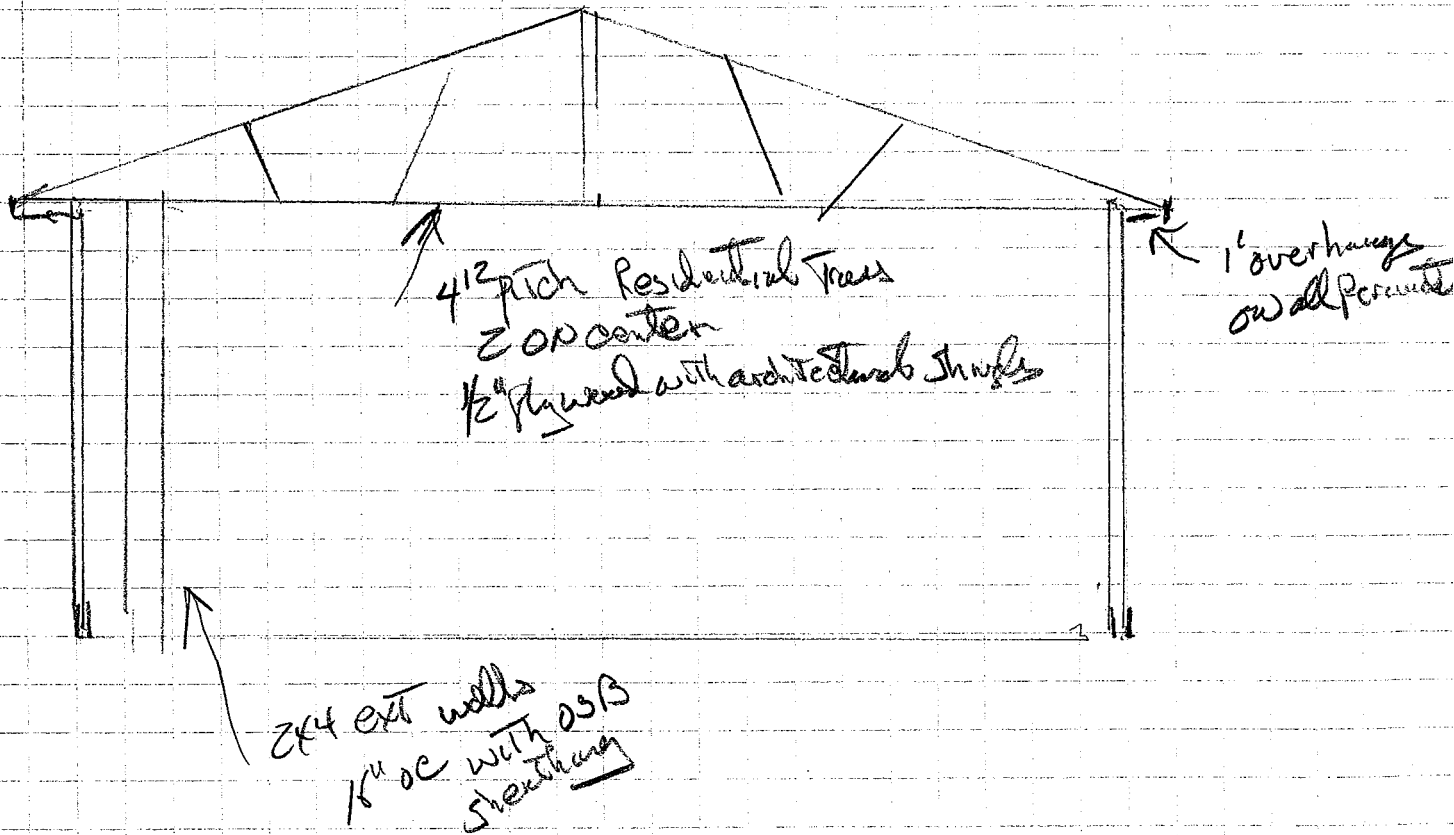 4 12 pitch Residential Truss
2 ON center
1/2" plywood with architectural shingles
1' overhange
on all
2x4 ext walls
16" oc with OSB
sheathing